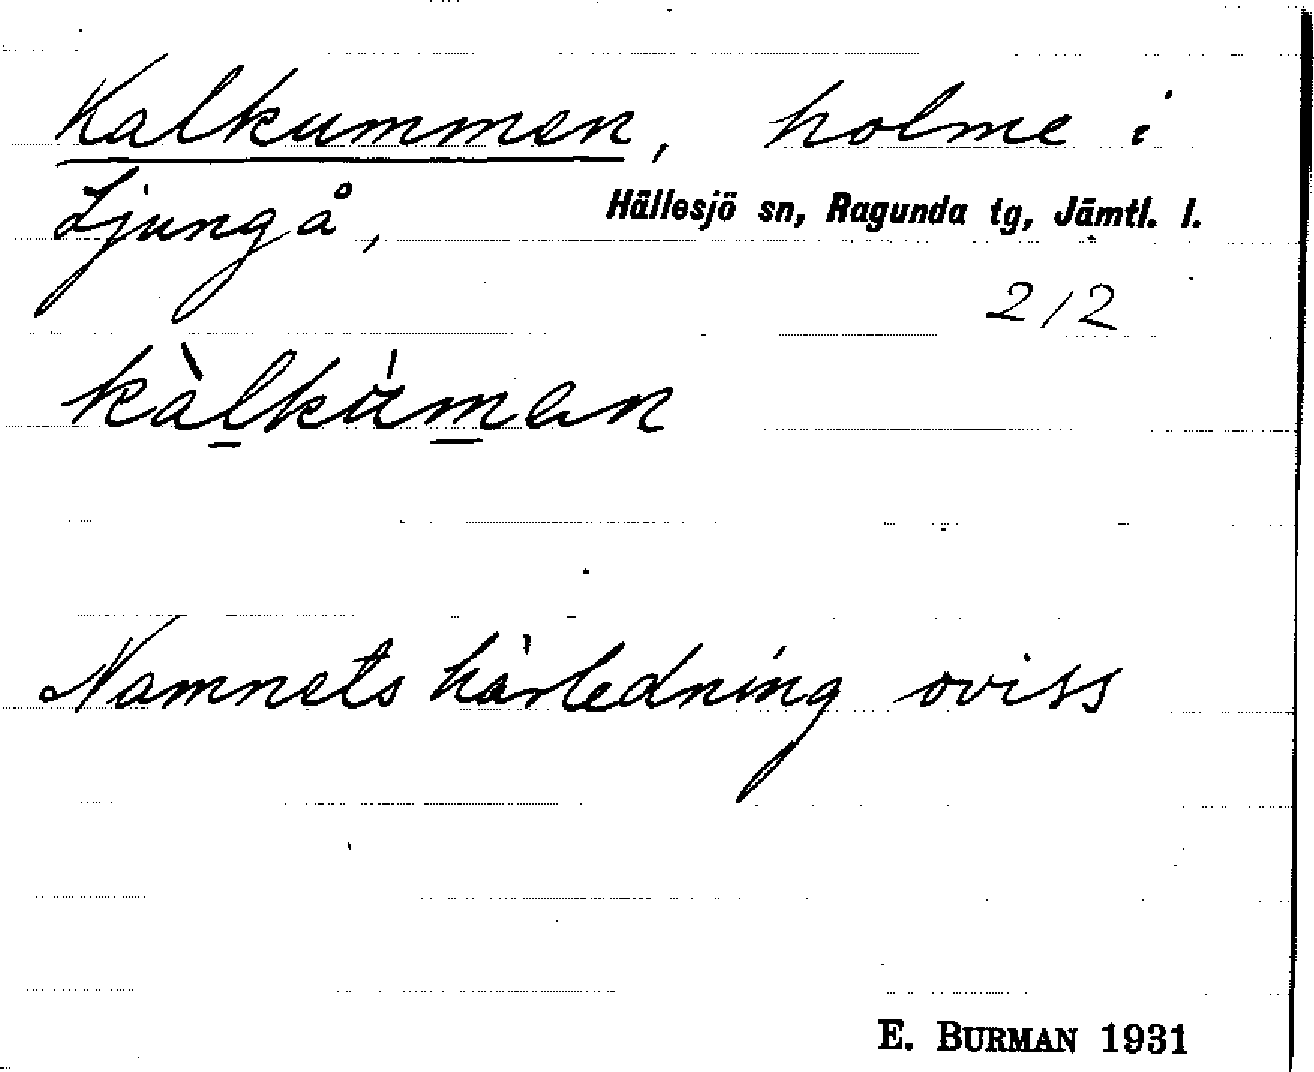 Kalkummen, holme i
Ljungå, Hällesjö sn, Ragunda tg, Jämtl. l.
212
kàlkúman
Namnets härledning oviss
E. BURMAN 1931